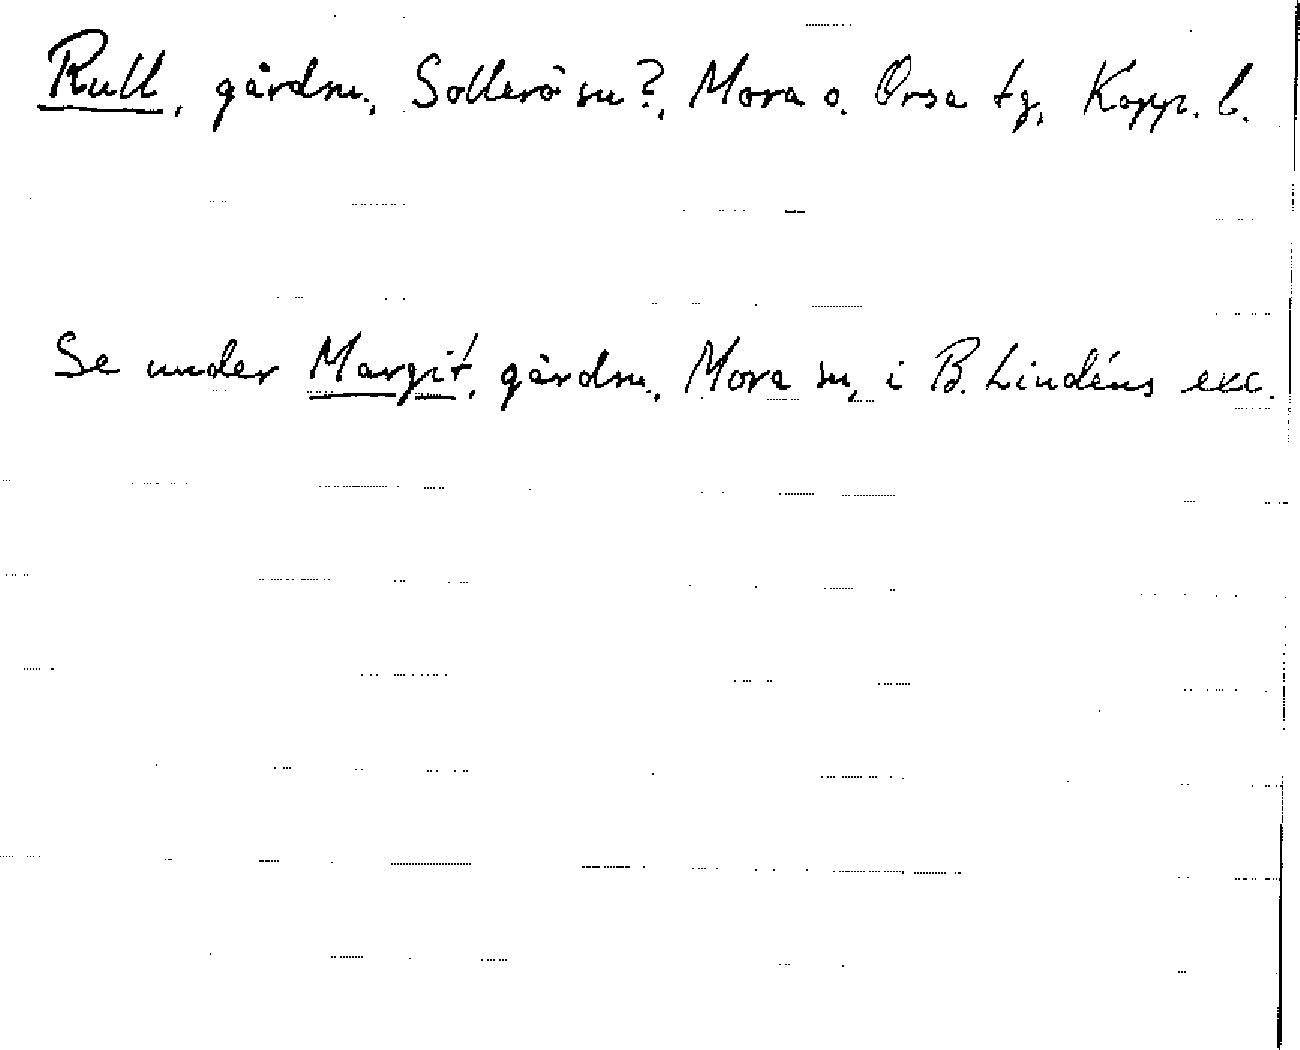 Rull, gårdsn., Sollerö sn?, Mora o. Orsa tg, Kopp. l.
Se under Margit, gårdsn., Mora sn, i B. Lindéns exc.